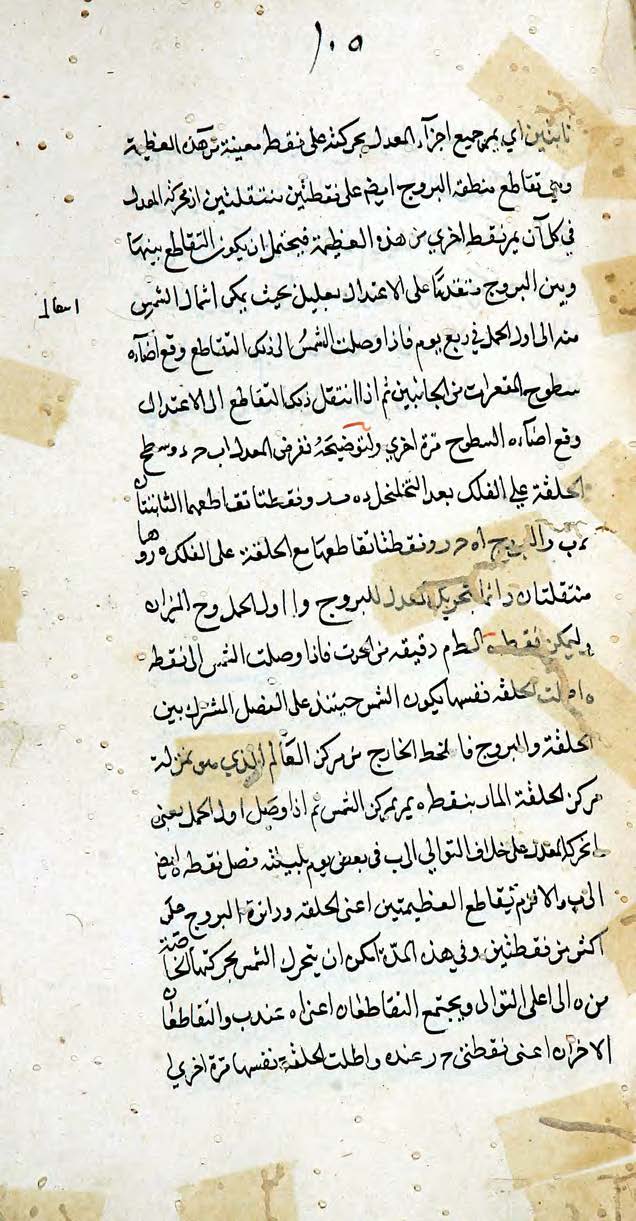 ١٠٥
ثابتتين اي يمر جميع اجزآء المعدل بحركته على نقط معينة من هذه العظيمة
وهي تقاطع منطقة البروج ايضا على نقطتين منتقلتين اذ بحركة المعدل
في كل آن يمر نقط اخرى من هذه العظيمة فيحتمل ان يكون التقاطع بينها
وبين البروج متقدما على الاعتدال بقليل بحيث يمكن انتقال الشمس
انتقال
منه الى اول الحمل في ربع يوم فاذا وصلت الشمس الى ذلك التقاطع وقع اضاءة
سطوح المقعرات من الجانبين ثم اذا انتقل ذلك التقاطع الى الاعتدال
وقع اضاءة السطوح مرة اخرى ولتوضيحه نفرض المعدل اب ح د وسطح
الحلقة على الفلك بعد التخلخل ونقطتا تقاطعهما الثابتتان
ب والبروج ونقطتا تقاطعها مع الحلقة على الفلك وهما
منتقلتان دائما بتحريك المعدل للبروج و ا اول الحمل و ح الميزان
وليكن نقطة دقيقة من الحوت فاذا وصلت الشمس الى نقطة
ه اظلت الحلقة نفسها يكون الشمس حينئذ على الفصل المشترك بين
الحلقة والبروج فالخط الخارج من مركز العالم الذي هو بمنزلة
مركز الحلقة المار بنقطة ه يمر بمركز الشمس ثم اذا وصل اول الحمل يعني ا
بحركة المعدل على خلاف التوالي الى ب في بعض يوم بليلته فصل نقطة ه ايضا
الى ب والا لزم تقاطع العظيمتين اعني الحلقة ودائرة البروج على
اكثر من نقطتين وفي هذه المدة امكن ان يتحرك الشمس بحركتها الخاصة
من ه الى ا على التوالي ويجتمع التقاطعان اعني ا ه عند ب والتقاطعان
الاخران اعني نقطتي ح ر عند ه واظلت الحلقة نفسها مرة اخرى